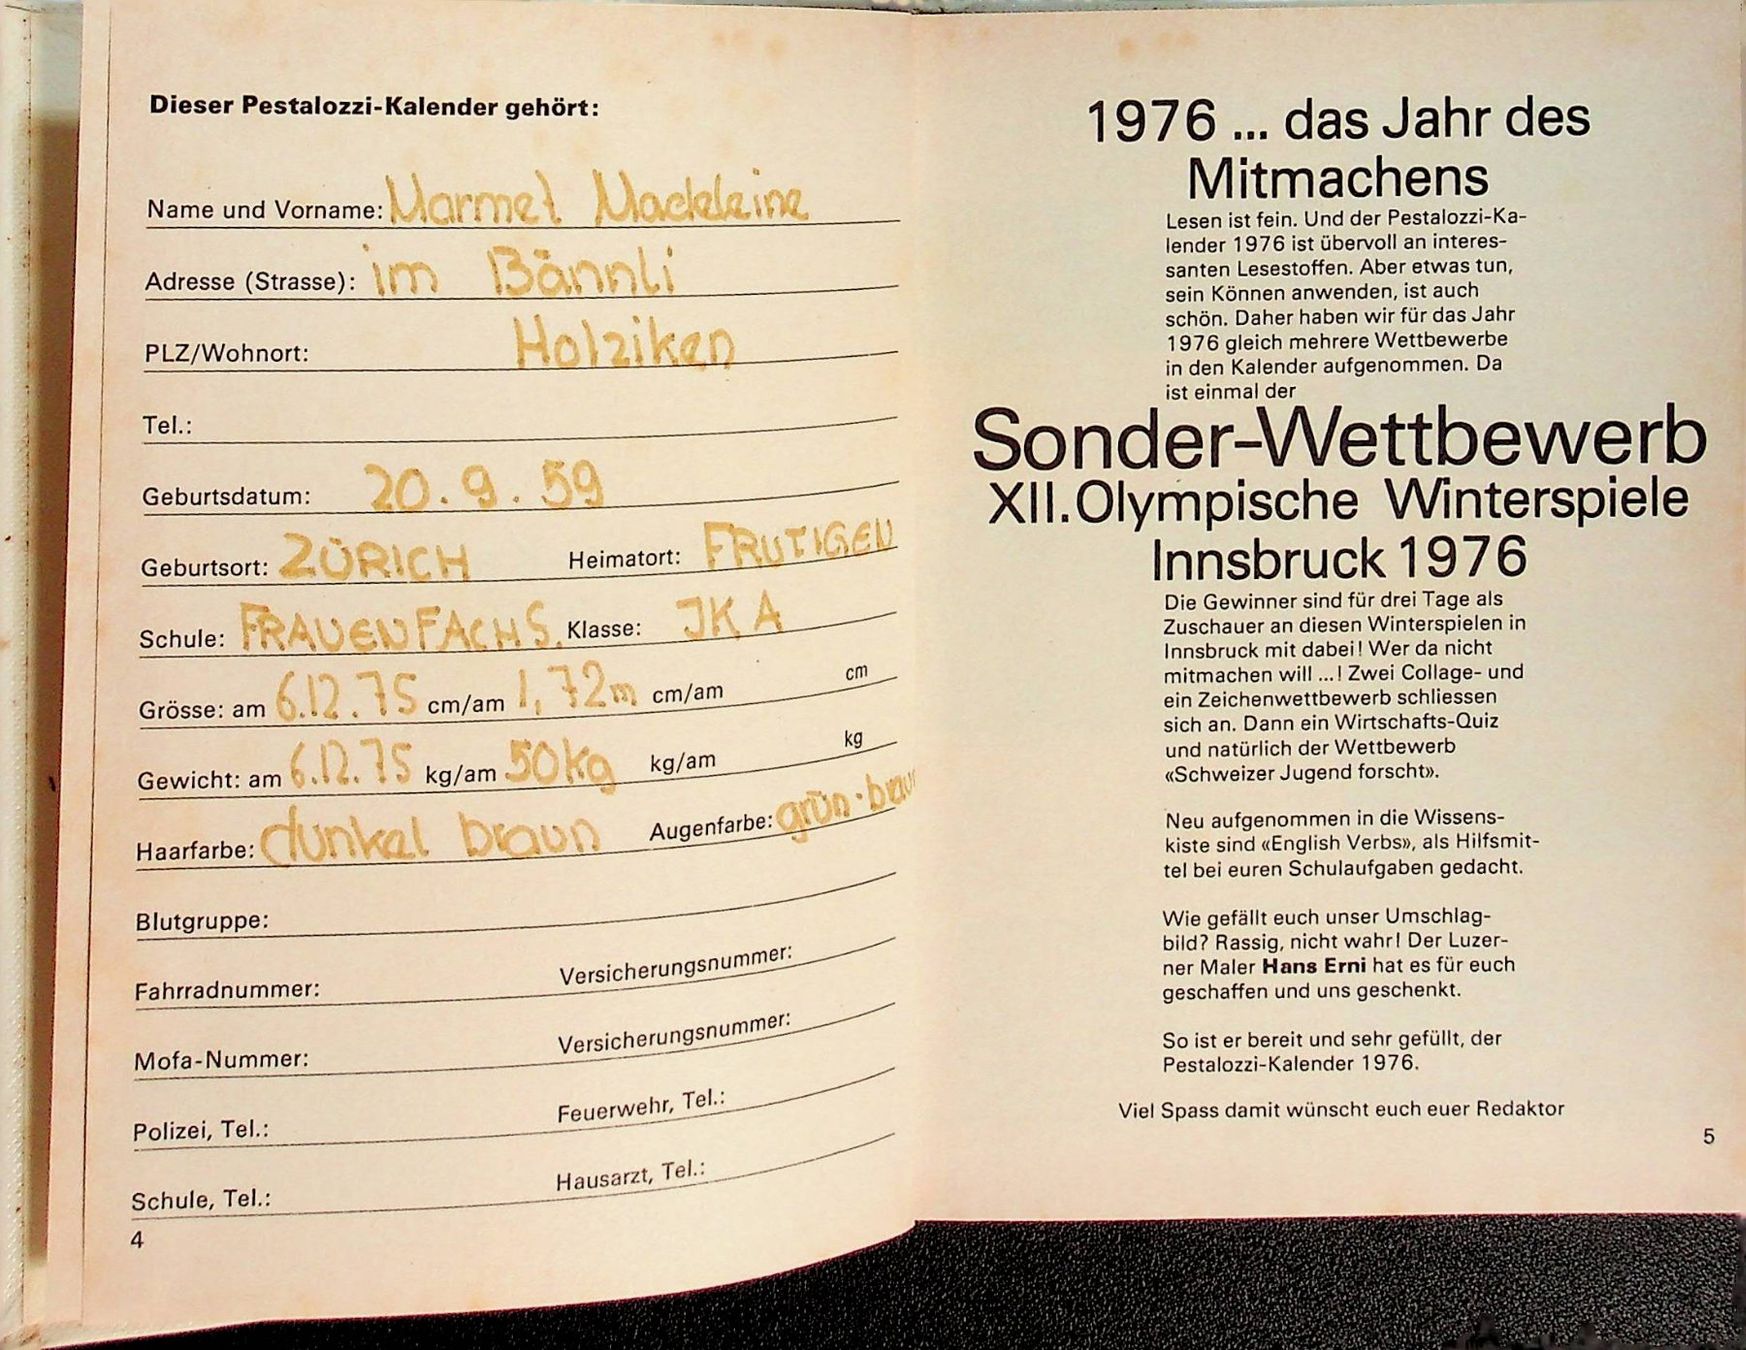 Dieser Pestalozzi-Kalender gehört:
Name und Vorname: Marmet Madeleine
Adresse (Strasse): im Bännli
PLZ/Wohnort: Holziken
Tel.:
Geburtsdatum: 20.9.59
Geburtsort: ZÜRICH Heimatort: FRUTIGEN
Schule: FRAUENFACHS. Klasse: JKA
Grösse: am 6.12.75 cm/am 1,72m cm/am cm
Gewicht: am 6.12.75 kg/am 50kg kg/am kg
Haarfarbe: dunkel braun Augenfarbe: grün-braun
Blutgruppe:
Fahrradnummer: Versicherungsnummer:
Mofa-Nummer: Versicherungsnummer:
Polizei, Tel.: Feuerwehr, Tel.:
Schule, Tel.: Hausarzt, Tel.:
4
1976 ... das Jahr des
Mitmachens
Lesen ist fein. Und der Pestalozzi-Ka-
lender 1976 ist übervoll an interes-
santen Lesestoffen. Aber etwas tun,
sein Können anwenden, ist auch
schön. Daher haben wir für das Jahr
1976 gleich mehrere Wettbewerbe
in den Kalender aufgenommen. Da
ist einmal der
Sonder-Wettbewerb
XII.Olympische Winterspiele
Innsbruck 1976
Die Gewinner sind für drei Tage als
Zuschauer an diesen Winterspielen in
Innsbruck mit dabei! Wer da nicht
mitmachen will ...! Zwei Collage- und
ein Zeichenwettbewerb schliessen
sich an. Dann ein Wirtschafts-Quiz
und natürlich der Wettbewerb
«Schweizer Jugend forscht».
Neu aufgenommen in die Wissens-
kiste sind «English Verbs», als Hilfsmit-
tel bei euren Schulaufgaben gedacht.
Wie gefällt euch unser Umschlag-
bild? Rassig, nicht wahr! Der Luzer-
ner Maler Hans Erni hat es für euch
geschaffen und uns geschenkt.
So ist er bereit und sehr gefüllt, der
Pestalozzi-Kalender 1976.
Viel Spass damit wünscht euch euer Redaktor
5